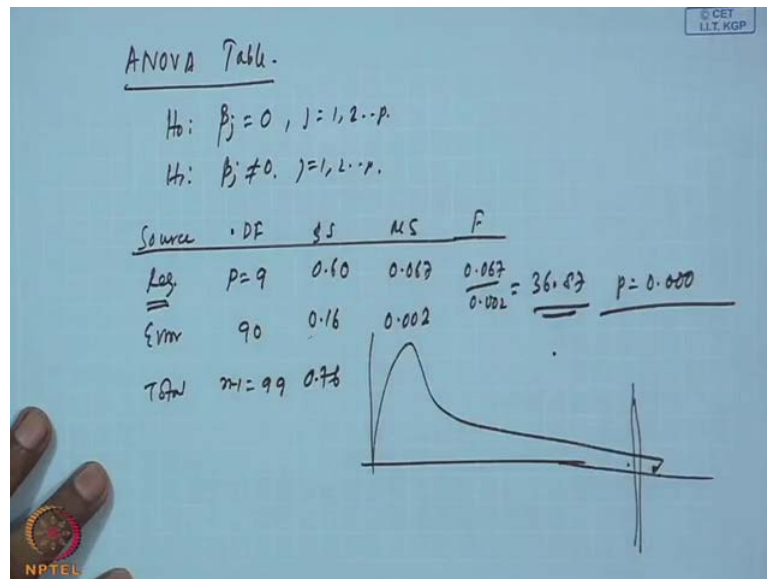 © CET
I.I.T. KGP
ANOVA Table.
H₀: βj = 0, j = 1, 2..p.
H₁: βj ≠ 0. j=1, 2..p.
Source DF SS MS F
Reg. P=9 0.60 0.067 0.067/0.002 = 36.87 p = 0.000
Error 90 0.16 0.002
Total n-1=99 0.76
NPTEL